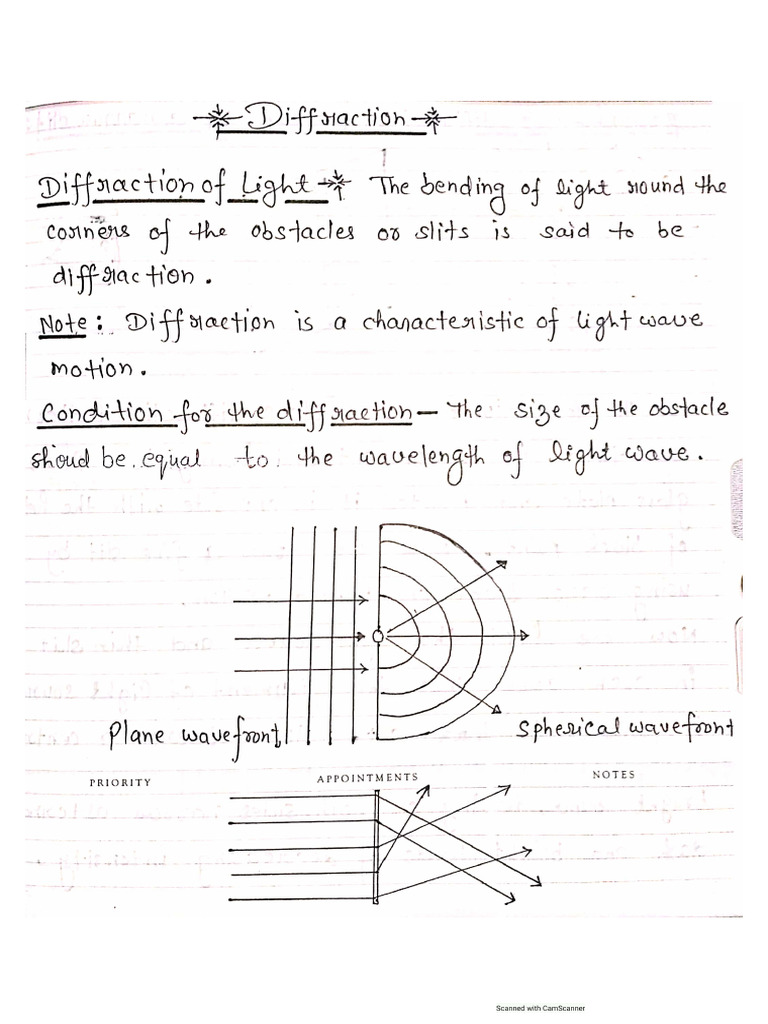 Diffraction
Diffraction of Light The bending of light round the
corners of the obstacles or slits is said to be
diffraction.
Note: Diffraction is a characteristic of light wave
motion.
Condition for the diffraction - The size of the obstacle
shoud be equal to the wavelength of light wave.
Plane wavefront
Spherical wavefront
PRIORITY
APPOINTMENTS
NOTES
Scanned with CamScanner